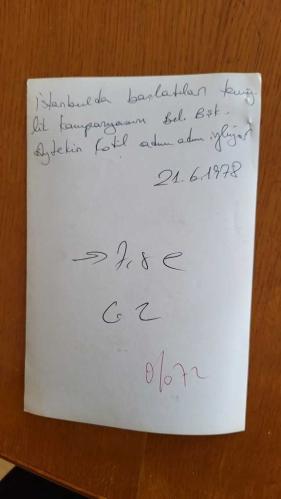 İstanbulda başlatılan temiz
lik kampanyasını Bel. Bşk.
Aytekin Kotil adım adım izliyor
21.6.1978
→ 7,8 e
C. 2
%72